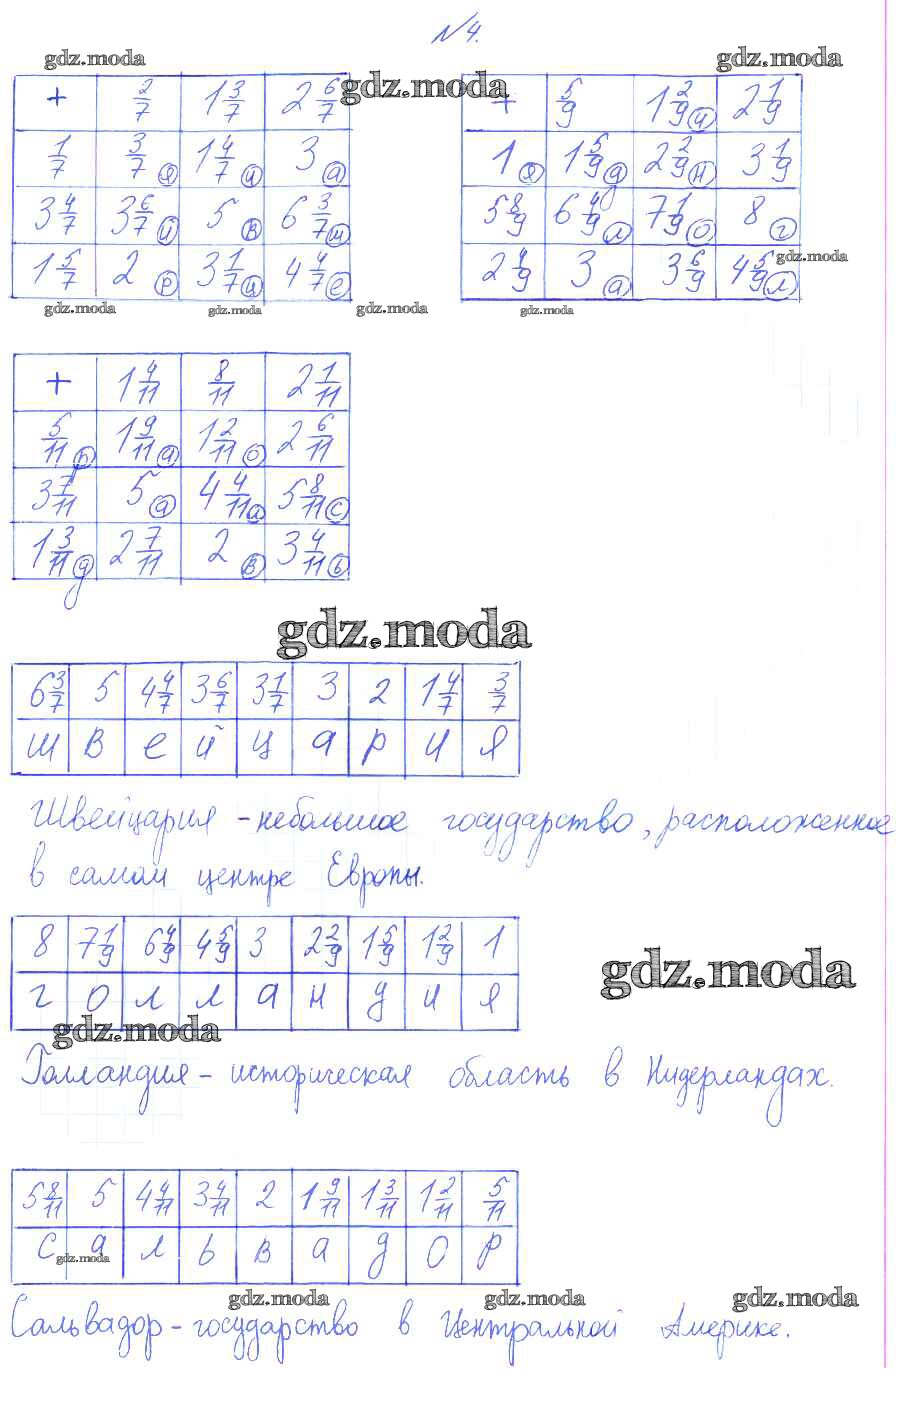 №4.
gdz.moda gdz.moda gdz.moda
+ 2/7 1 3/7 2 6/7
1/7 3/7 я 1 4/7 и 3 а
3 4/7 3 6/7 й 5 в 6 3/7 ш
1 5/7 2 р 3 1/7 ц 4 4/7 е
+ 5/9 1 2/9 и 2 1/9
1 я 1 5/9 д 2 2/9 н 3 1/9
5 8/9 6 4/9 л 7 1/9 о 8 г
2 4/9 3 а 3 6/9 4 5/9 л
gdz.moda
gdz.moda gdz.moda gdz.moda gdz.moda
+ 1 4/11 8/11 2 1/11
5/11 р 1 9/11 а 1 2/11 о 2 6/11
3 7/11 5 а 4 4/11 л 5 8/11 с
1 3/11 д 2 7/11 2 в 3 4/11 ь
gdz.moda
6 3/7 5 4 4/7 3 6/7 3 1/7 3 2 1 4/7 3/7
ш в е й ц а р и я
Швейцария - небольшое государство, расположенное
в самом центре Европы.
8 7 1/9 6 4/9 4 5/9 3 2 2/9 1 5/9 1 2/9 1
г о л л а н д и я
gdz.moda
gdz.moda
Голландия - историческая область в Нидерландах.
5 8/11 5 4 4/11 3 4/11 2 1 9/11 1 3/11 1 2/11 5/11
с а л ь в а д о р
gdz.moda
gdz.moda gdz.moda gdz.moda
Сальвадор - государство в Центральной Америке.